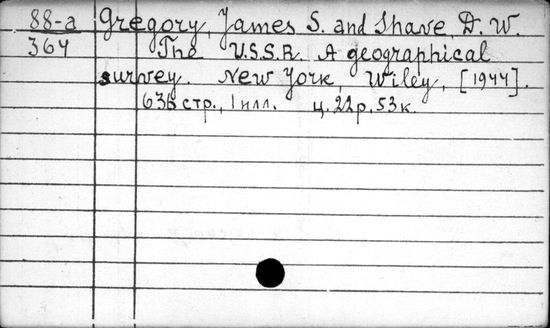 88-a Gregory, James S. and Shave, D. W.
364 The U.S.S.R. A geographical
survey. New York, Wiley, [1944].
636 стр., 1 илл. ц. 22 р. 53 к.